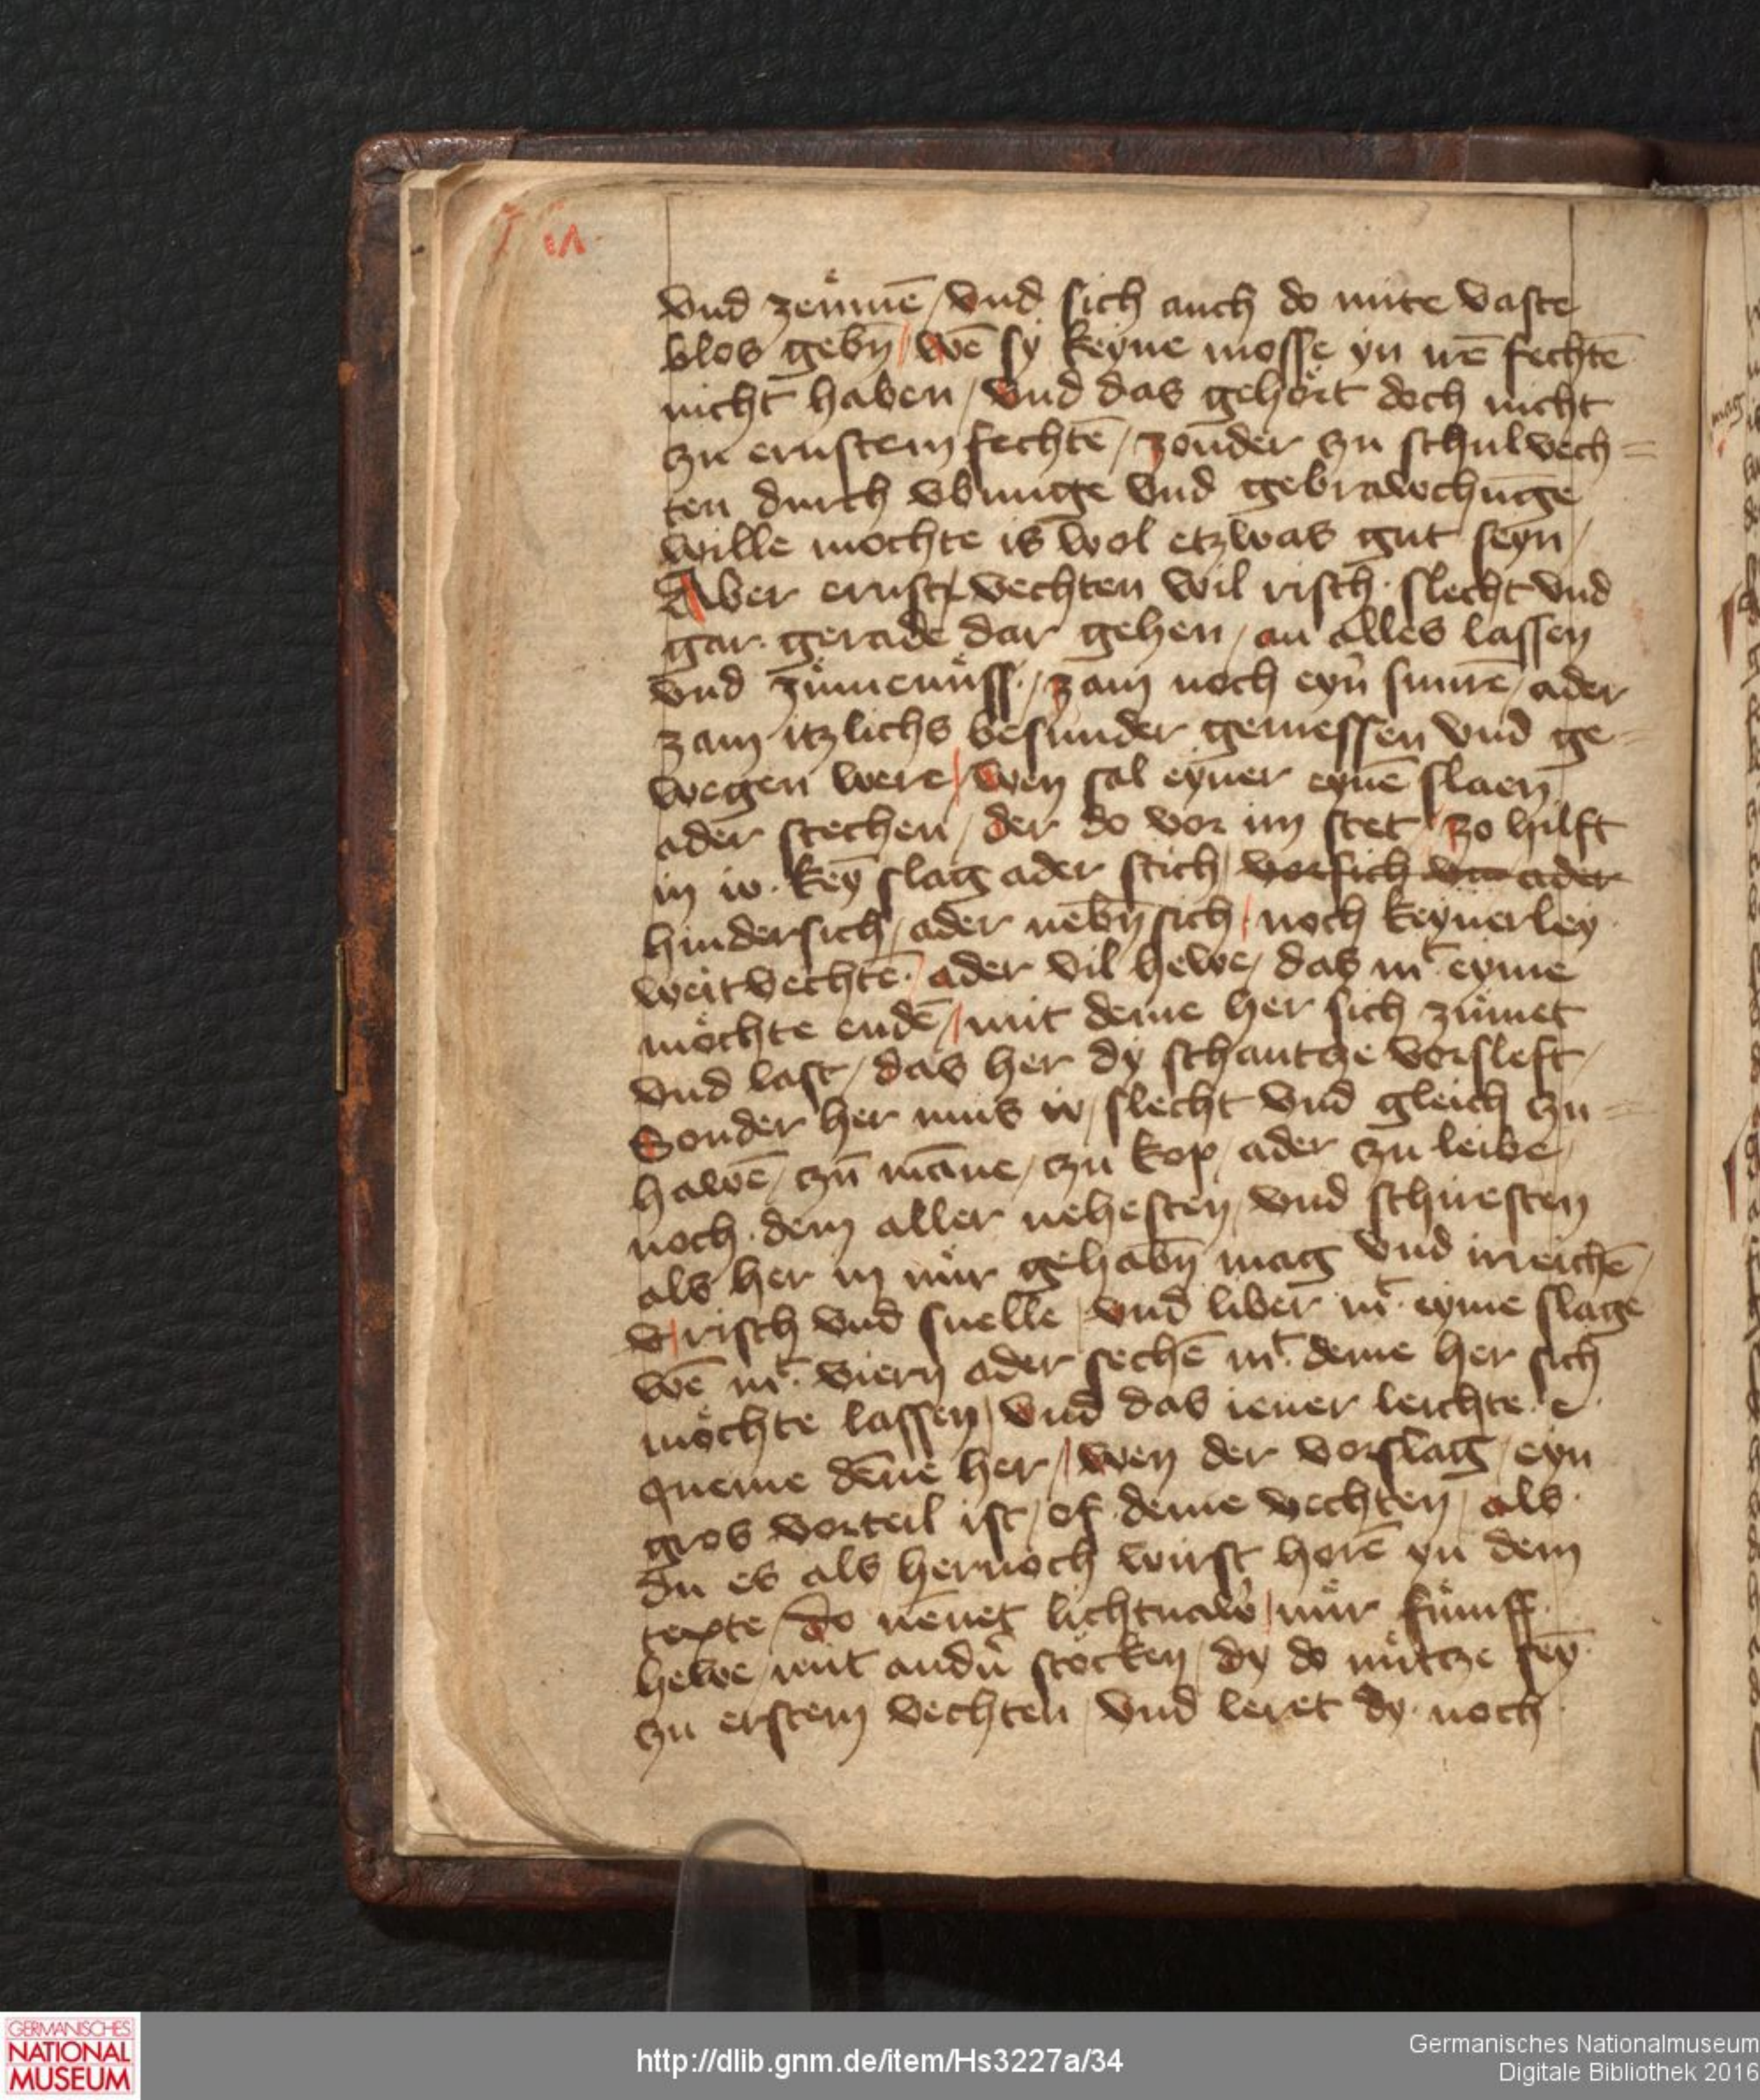 vnd zeümē / vnd sich auch do mite vaste
blos gebñ / wē sy keyne mosse yn irē fechtē
nicht haben / vnd das gehört doch nicht
zu ernstem fechtē / zonder zu schulvech=
ten durch vbunge vnd gebrawchunge
wille mochte is wol etzwas gut seyn /
Aber ernst vechten wil risch · slecht vnd
gar · gerade dar gehen / an alles lassen
vnd zümenüss · / zam noch eyn̄ snure / ader
zam itzlichs besunder gemessen vnd ge=
wegen were / wen sal eyner eynē slaen
ader stechen / der do vor im stet / zo hilft
in io · key̅ slag ader stich / vorsich vn̄ ader
hindersich / ader nebn̄ sich / noch keynerley
weitvechtē · ader vil hewe / das mͭ eyme
möchte endē / mit deme her sich zümet
vnd last / das her dy schantcze vorsleft /
Sonder her mus io / slecht vnd gleich zu=
hawē / zu̅ mañe / zu kop / ader zu leibe /
noch · dem aller nehesten / vnd schiresten
als her in nür gehabn̄ mag vnd irreichē /
v̄ / risch vnd snelle / vnd liber mͭ · eyme slage
wē mͭ · viern ader sechē mͭ · deme her sich
möchte lassen / vnd das iener leichte · e ·
queme den̄e her / wen der vorslag / eyn
gros vorteil ist / of · deme vechten / als ·
du es als hernoch wirst horē yn dem
texte / do neñet lichtnaw̓ / nür fümff ·
hewe / mit andn̄ stöcken / dy do nütcze sey̅ ·
zu erstem vechten / vnd leret dy · noch ·
GERMANISCHES
NATIONAL
MUSEUM
http://dlib.gnm.de/item/Hs3227a/34
Germanisches Nationalmuseum
Digitale Bibliothek 2016